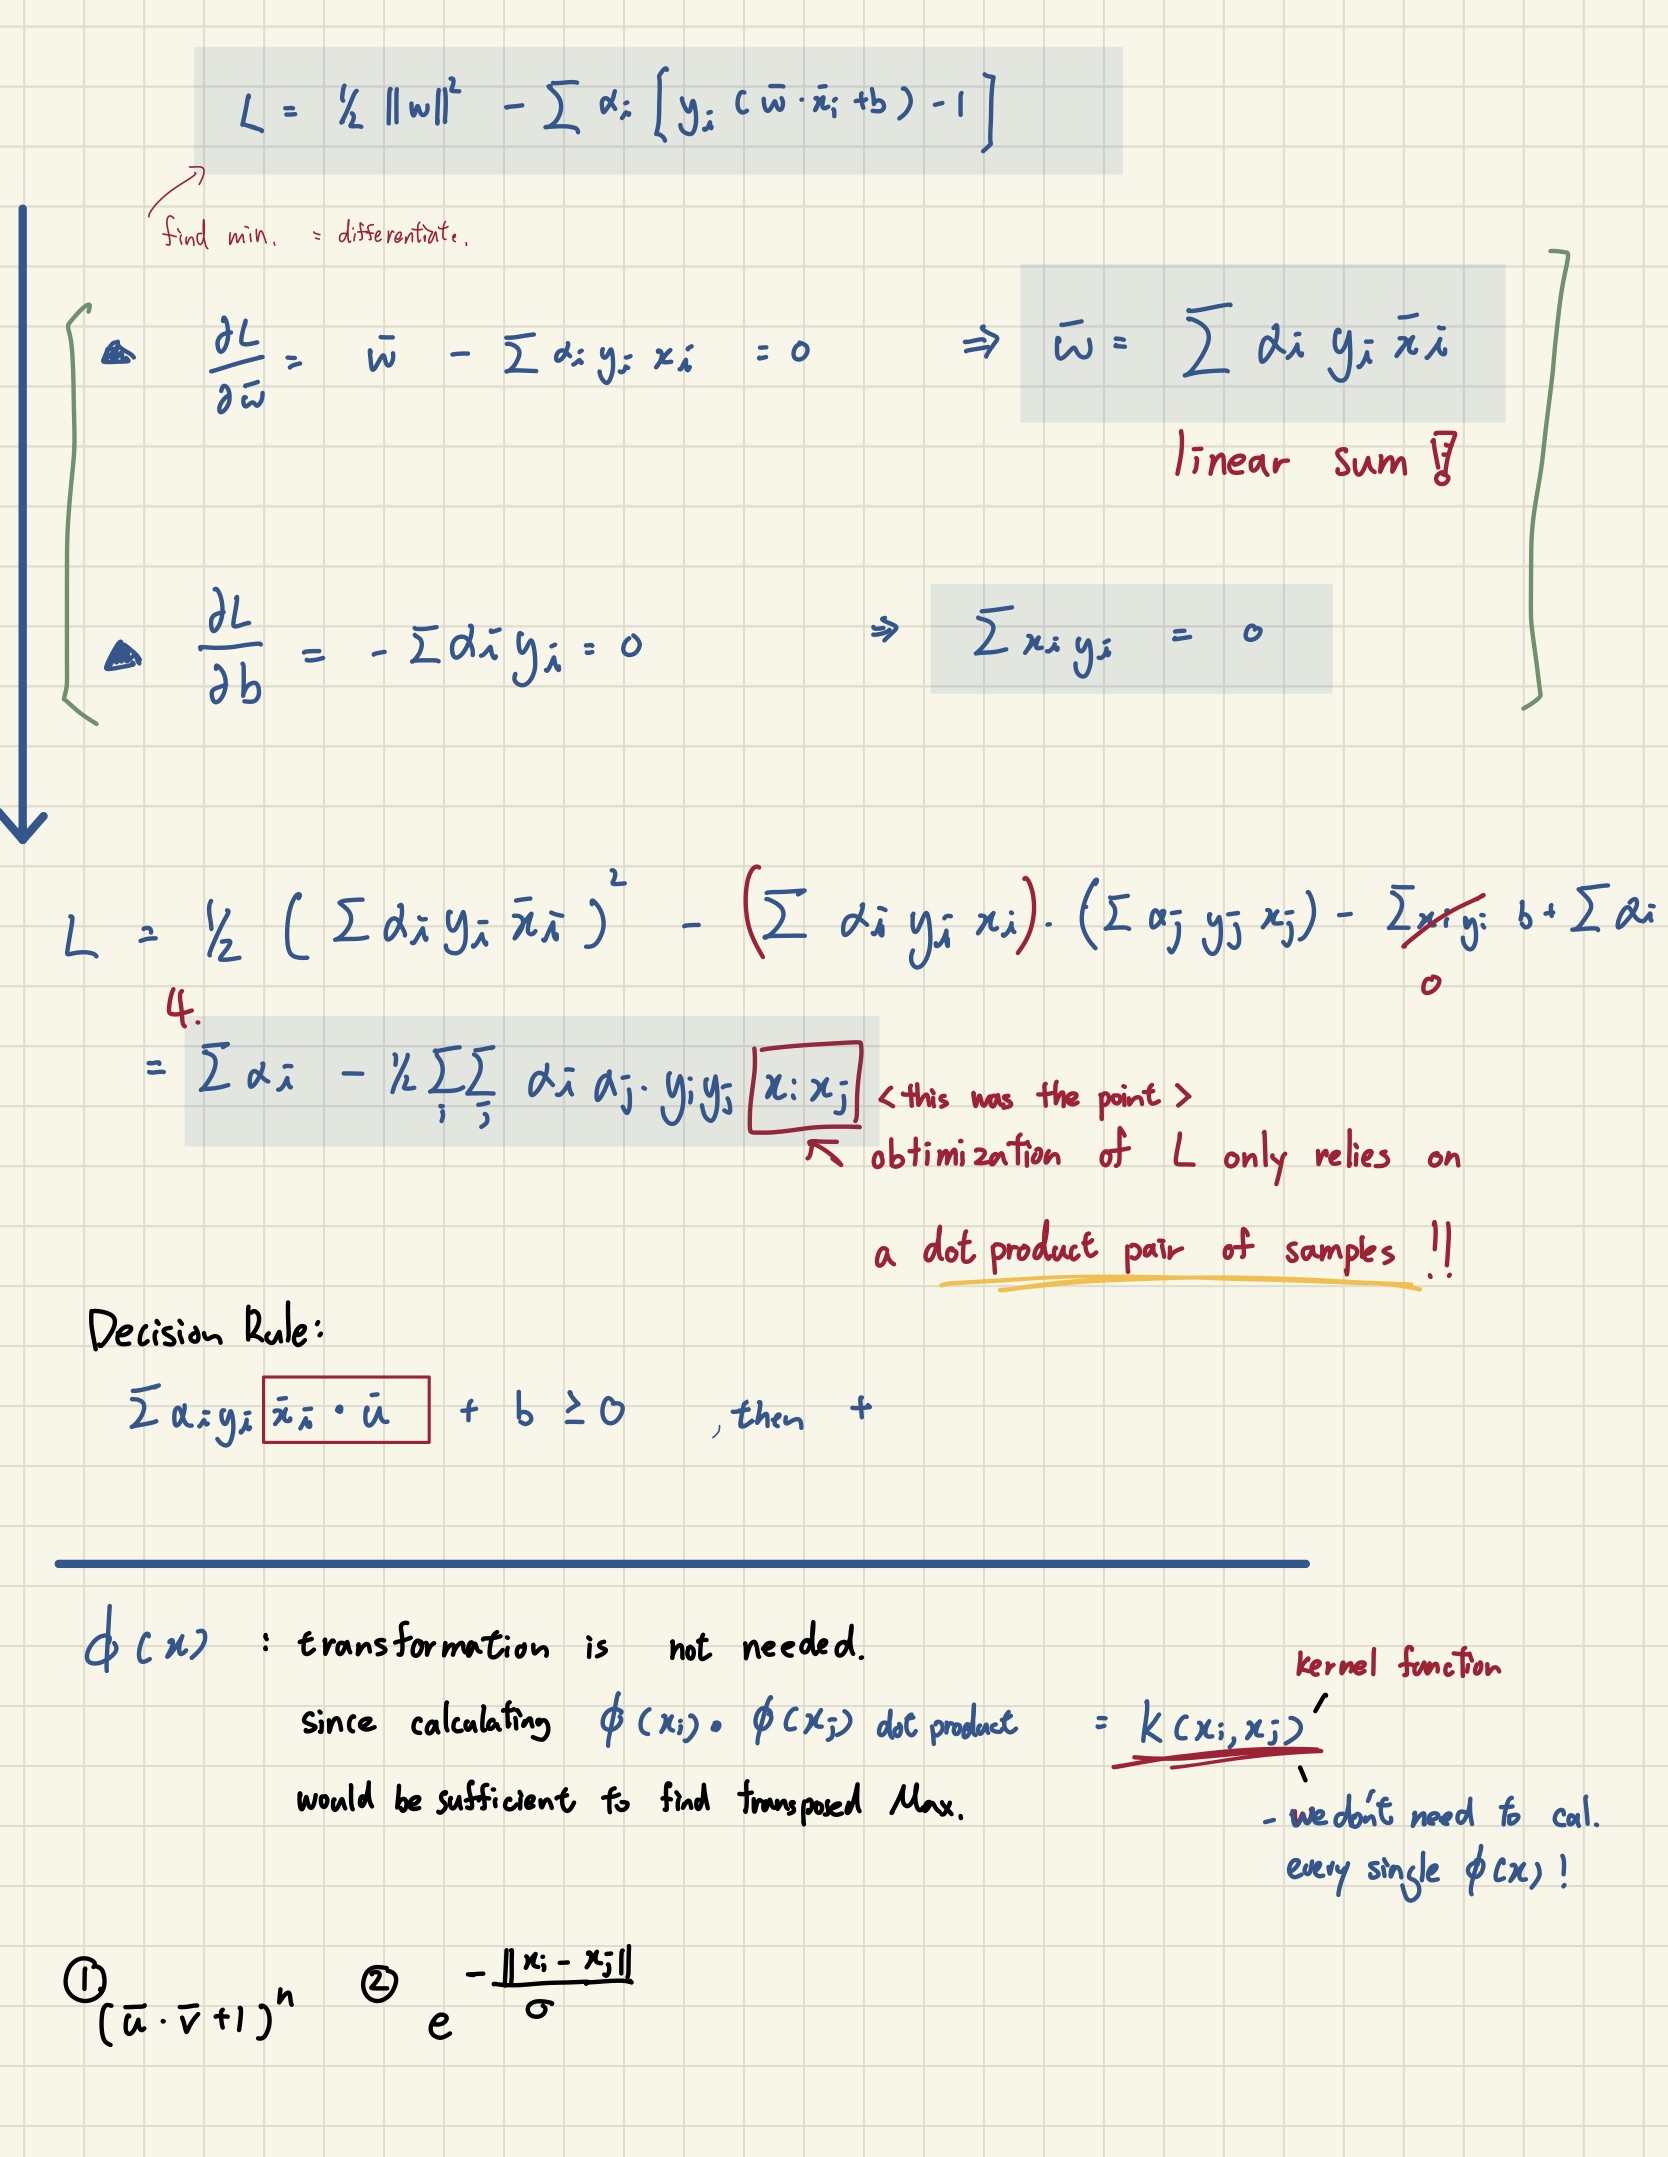 L = ½ ||w||² - Σ αᵢ [yᵢ (w̄ · x̄ᵢ + b) - 1]
find min. = differentiate.
∂L/∂w̄ = w̄ - Σ αᵢ yᵢ xᵢ = 0 ⇒ w̄ = Σ αᵢ yᵢ x̄ᵢ
linear sum !
∂L/∂b = - Σ αᵢ yᵢ = 0 ⇒ Σ xᵢ yᵢ = 0
L = ½ (Σ αᵢ yᵢ x̄ᵢ)² - (Σ αᵢ yᵢ xᵢ) · (Σ αⱼ yⱼ xⱼ) - Σ xᵢ yᵢ b + Σ αᵢ
0
4.
= Σ αᵢ - ½ Σᵢ Σⱼ αᵢ αⱼ · yᵢ yⱼ xᵢ xⱼ
<this was the point>
obtimization of L only relies on
a dot product pair of samples !!
Decision Rule:
Σ αᵢ yᵢ x̄ᵢ · ū + b ≥ 0 , then +
φ(x) : transformation is not needed.
kernel function
since calculating φ(xᵢ) · φ(xⱼ) dot product = K(xᵢ, xⱼ)
would be sufficient to find transposed Max.
- we don't need to cal.
every single φ(x) !
① (ū · v̄ + 1)ⁿ ② e^(-||xᵢ - xⱼ||/σ)